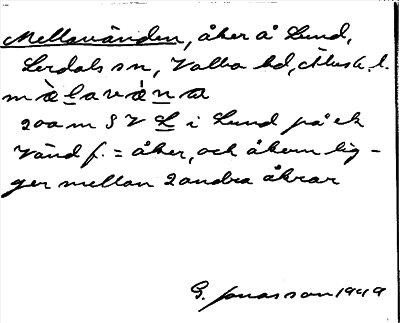 Mellanvänden, åker å Lund,
Lerdals sn, Valbo hd, Älvsb. l.
mèḻavèṉa
200 m S V L i Lund på ek
Vänd f. = åker, och åkern lig-
ger mellan 2 andra åkrar
G. Jonasson 1949